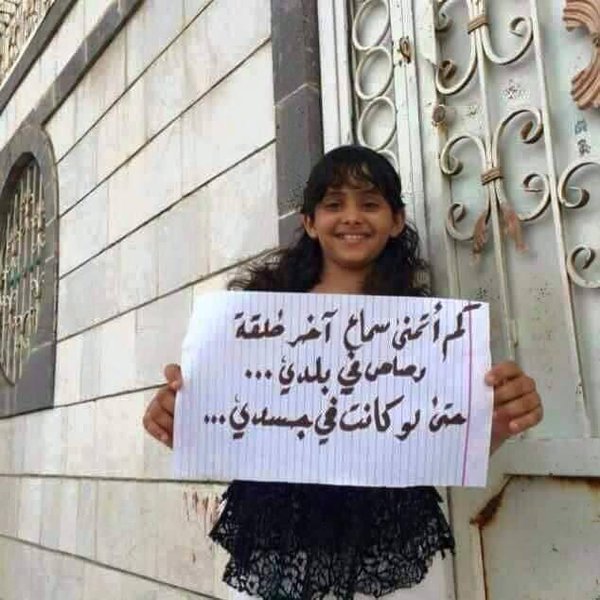 كم أتمنى سماع آخر طلقة
رصاص في بلدي ...
حتى لو كانت في جسدي ...